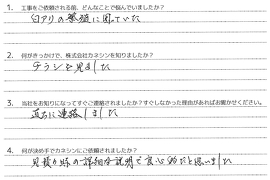 1. 工事をご依頼される前、どんなことで悩んでいましたか?
白アリの繁殖に困っていた
2. 何がきっかけで、株式会社カネシンを知りましたか?
チラシを見ました
3. 当社をお知りになってすぐご連絡されましたか?すぐしなかった理由があればお聞かせください。
直ちに連絡しました
4. 何が決め手でカネシンにご依頼されましたか?
見積り時の詳細な説明で良心的だと思いました